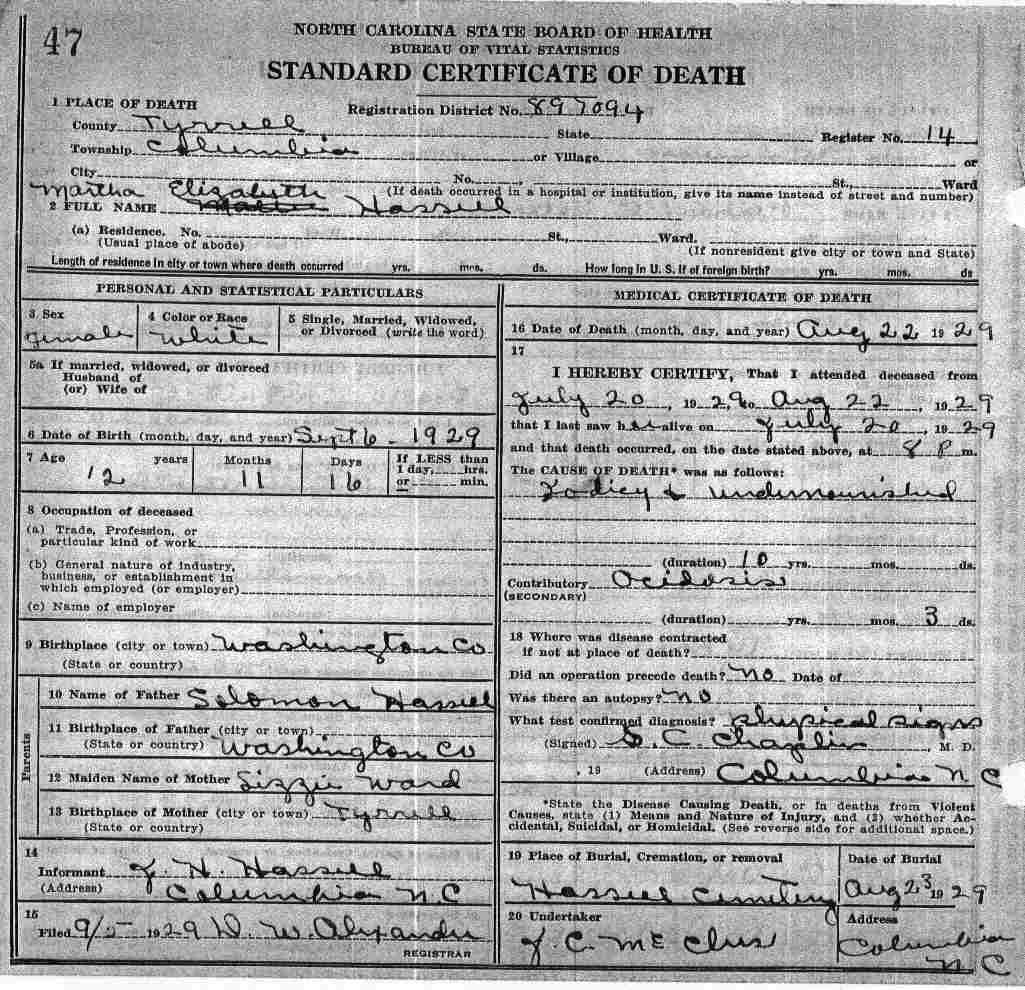 47
NORTH CAROLINA STATE BOARD OF HEALTH
BUREAU OF VITAL STATISTICS
STANDARD CERTIFICATE OF DEATH
1 PLACE OF DEATH
Registration District No. 897094
County Tyrrell State Register No. 14
Township Columbia or Village or
City No. St., Ward
(If death occurred in a hospital or institution, give its name instead of street and number)
Martha Elizabeth
2 FULL NAME Hassell
(a) Residence. No. St., Ward.
(Usual place of abode) (If nonresident give city or town and State)
Length of residence in city or town where death occurred yrs. mos. ds. How long in U. S. if of foreign birth? yrs. mos. ds
PERSONAL AND STATISTICAL PARTICULARS
3 Sex
female
4 Color or Race
White
5 Single, Married, Widowed,
or Divorced (write the word)
5a If married, widowed, or divorced
Husband of
(or) Wife of
6 Date of Birth (month, day, and year) Sept 6 - 1929
7 Age years Months Days If LESS than
1 day, hrs.
or min.
12 11 16
8 Occupation of deceased
(a) Trade, Profession, or
particular kind of work
(b) General nature of industry,
business, or establishment in
which employed (or employer)
(c) Name of employer
9 Birthplace (city or town) Washington Co
(State or country)
Parents
10 Name of Father Solomon Hassell
11 Birthplace of Father (city or town)
(State or country) Washington Co
12 Maiden Name of Mother Lizzie Ward
13 Birthplace of Mother (city or town) Tyrrell
(State or country)
14
Informant J. H. Hassell
(Address) Columbia N C
15
Filed 9/5 1929 W. Alexander
REGISTRAR
MEDICAL CERTIFICATE OF DEATH
16 Date of Death (month, day, and year) Aug 22 1929
17
I HEREBY CERTIFY, That I attended deceased from
July 20, 1929, to Aug 22, 1929
that I last saw her alive on July 20, 1929
and that death occurred, on the date stated above, at 8 P m.
The CAUSE OF DEATH* was as follows:
undernourished
(duration) 10 yrs. mos. ds.
Contributory Acidosis
(SECONDARY)
(duration) yrs. mos. 3 ds.
18 Where was disease contracted
if not at place of death?
Did an operation precede death? No Date of
Was there an autopsy? No
What test confirmed diagnosis? Physical signs
(Signed) C. Chaplin, M. D.
, 19 (Address) Columbia N C
*State the Disease Causing Death, or in deaths from Violent
Causes, state (1) Means and Nature of Injury, and (2) whether Ac-
cidental, Suicidal, or Homicidal. (See reverse side for additional space.)
19 Place of Burial, Cremation, or removal
Hassell Cemetery
Date of Burial
Aug 23 1929
20 Undertaker
J. C. Mc
Address
Columbia
N C